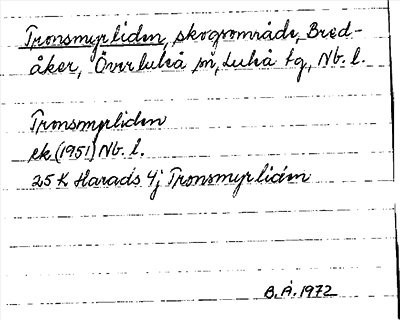 Tronsmyrliden, skogsområde, Bred-
åker, Överluleå sn, Luleå tg, Nb. l.
Tronsmyrliden
ek (1951) Nb. l.
25 K Harads 4j Tronsmyrliden
B.Å. 1972